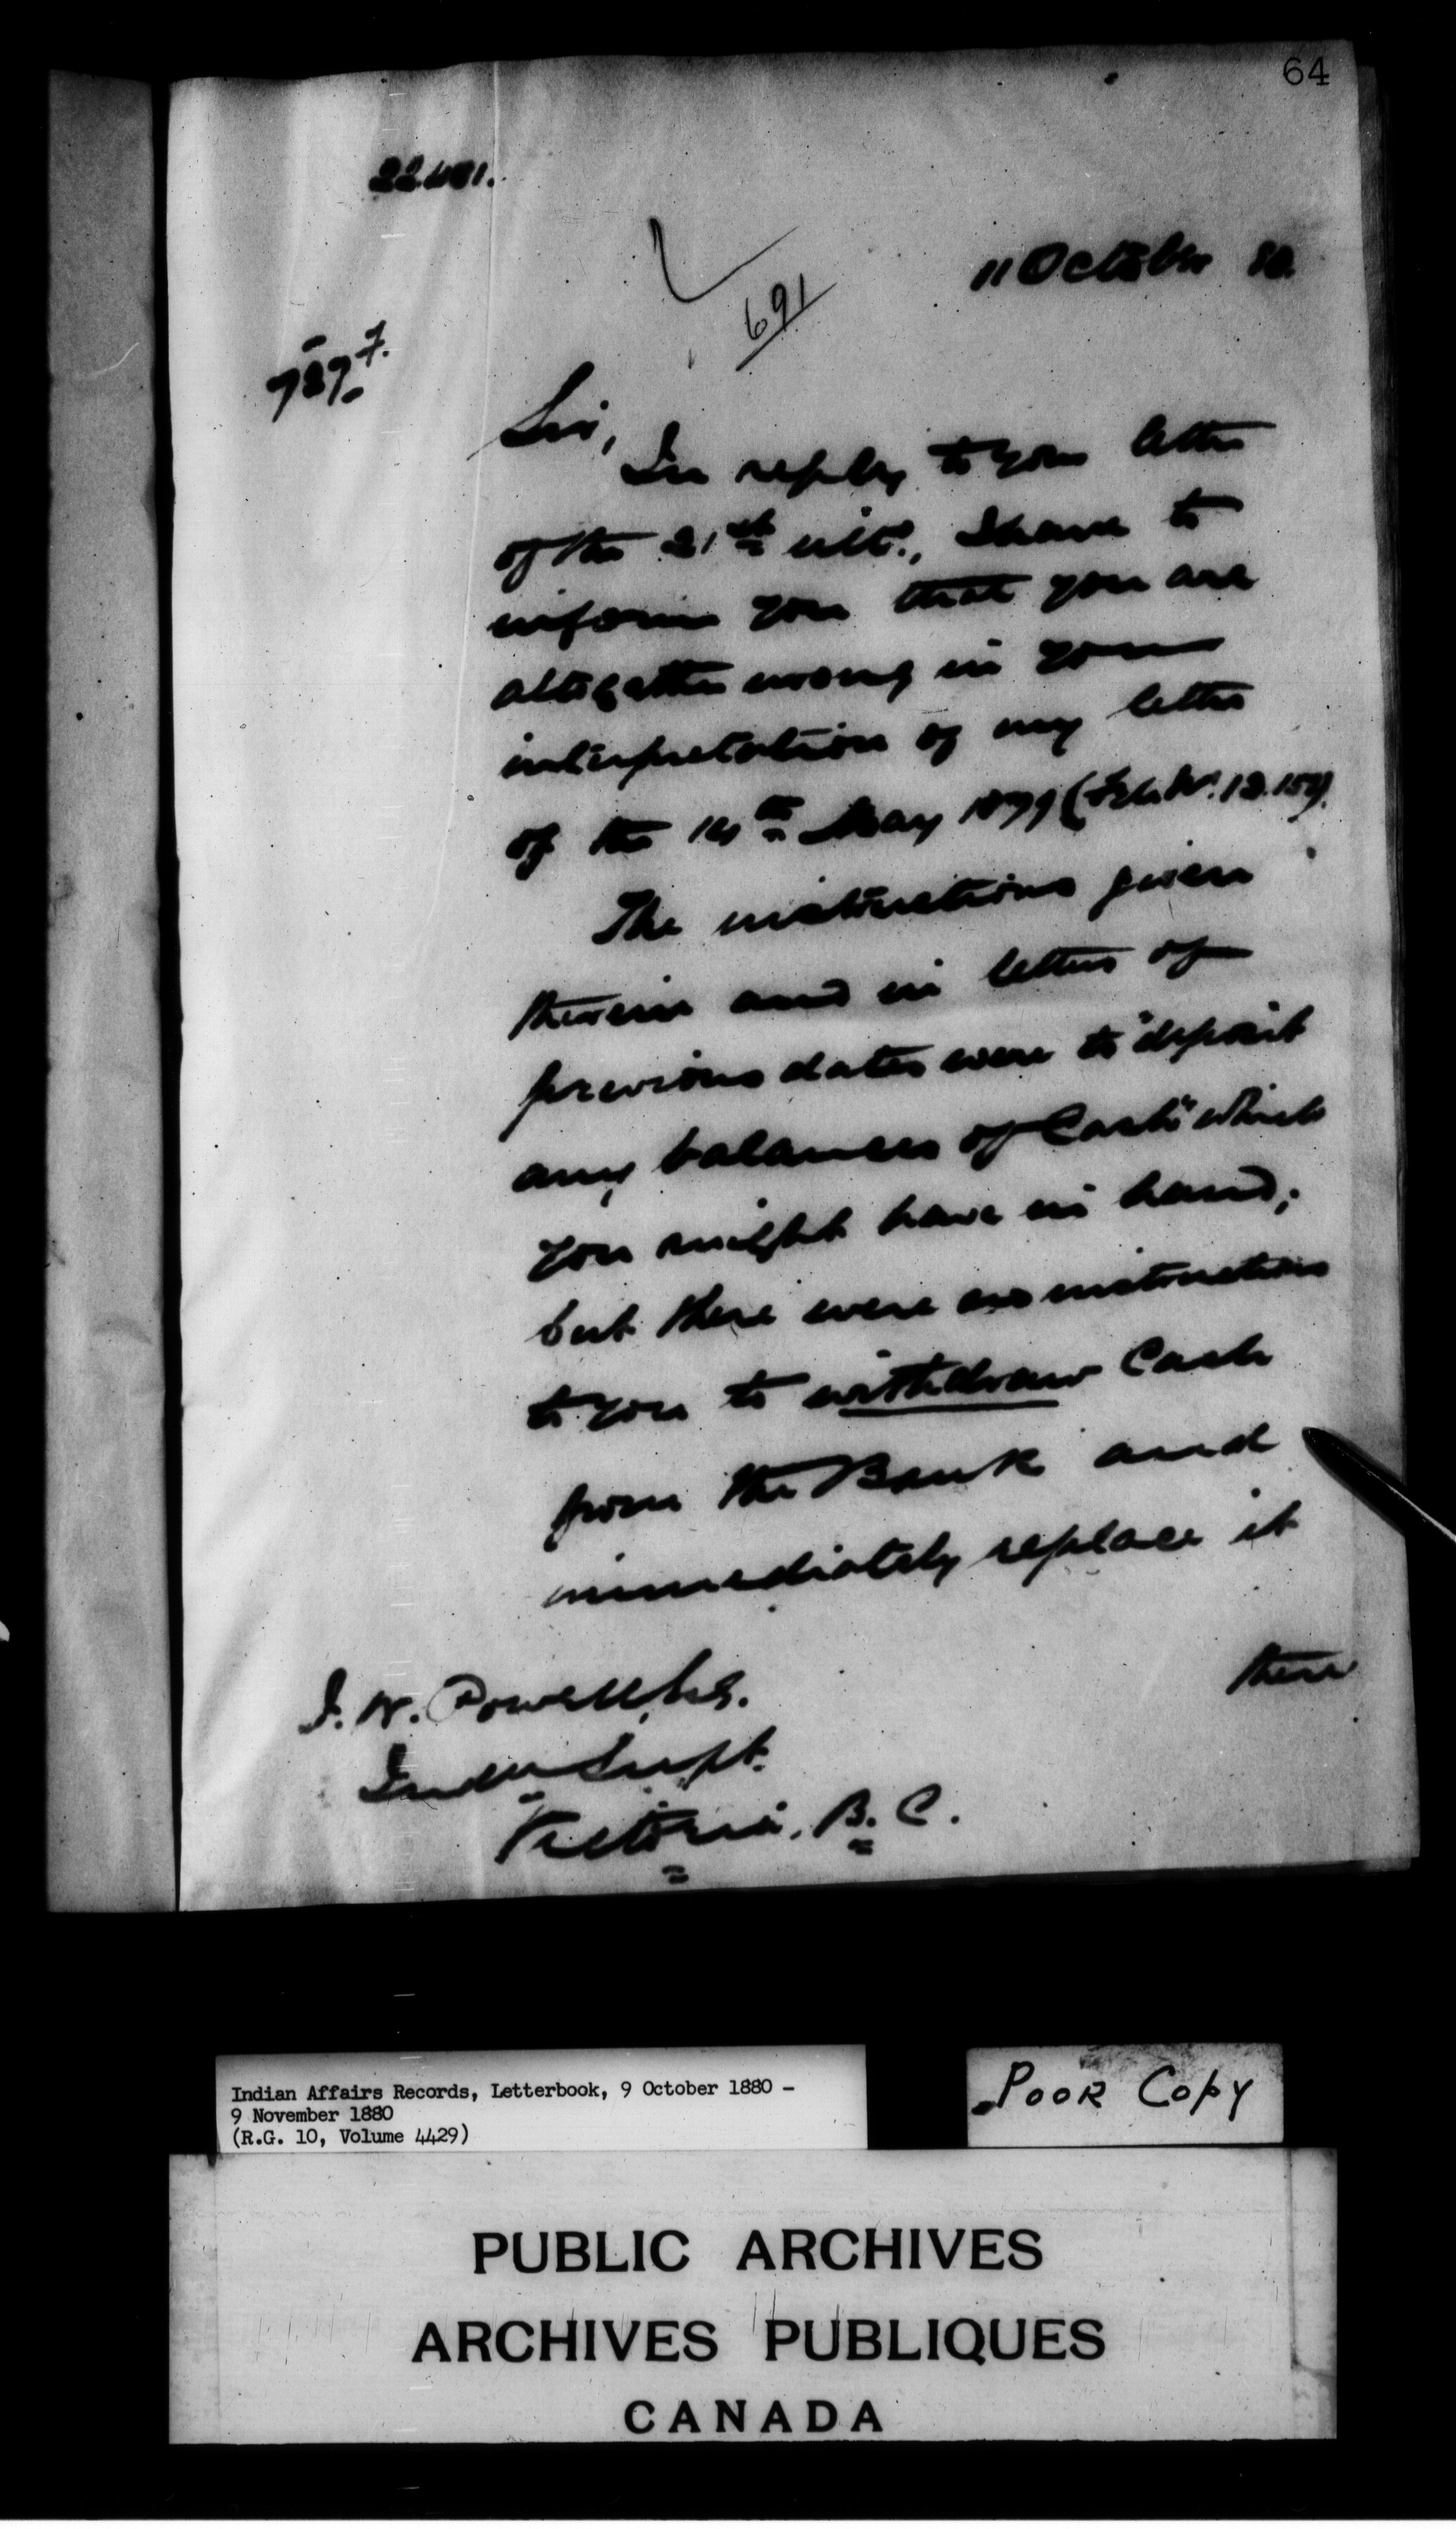 64
11 October 80.
691
Sir,
In reply to your letter
of the 21st ulto., I have to
inform you that you are
altogether wrong in your
interpretation of my letter
of the 14th May 1879 (
The instructions given
therein and in letters of
previous dates were to "deposit
any balances of Cash" which
you might have in hand;
but there were no instructions
to you to withdraw Cash
from the Bank and
immediately replace it
there
I. W. Powell, Esq.
Indn Supt.
Victoria, B. C.
Indian Affairs Records, Letterbook, 9 October 1880 -
9 November 1880
(R.G. 10, Volume 4429)
POOR COPY
PUBLIC ARCHIVES
ARCHIVES PUBLIQUES
CANADA